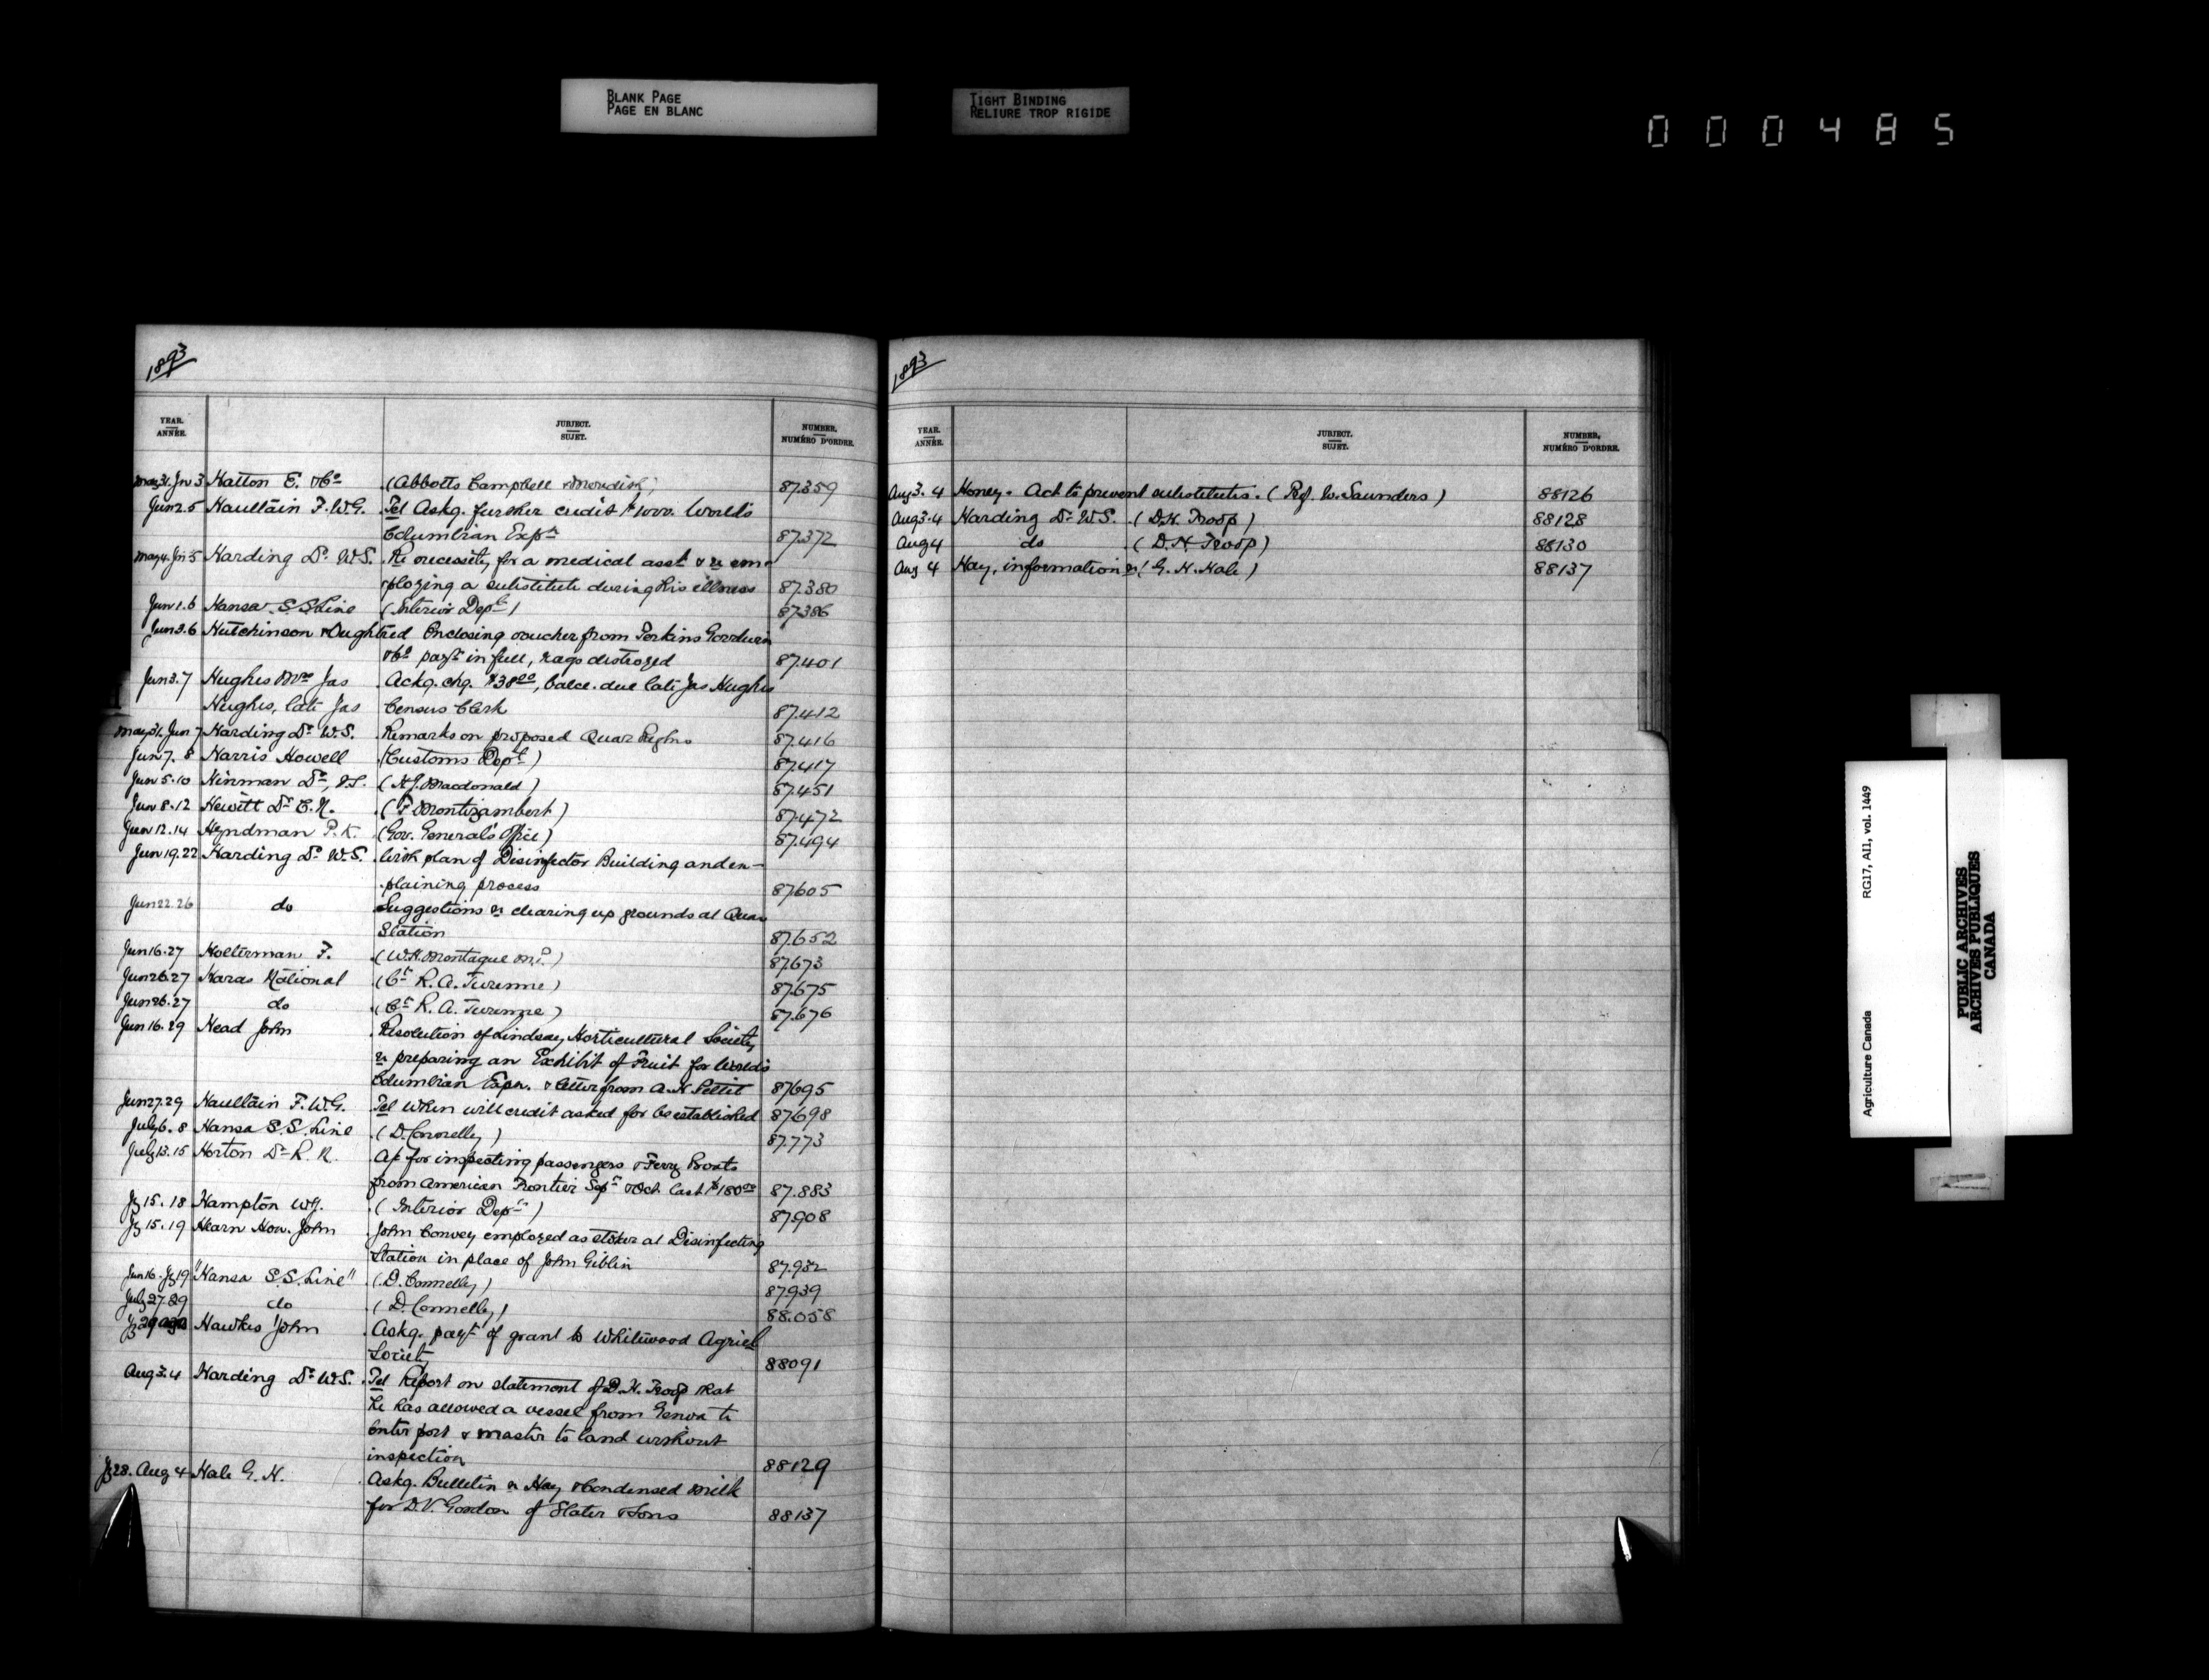 BLANK PAGE
PAGE EN BLANC
TIGHT BINDING
RELIURE TROP RIGIDE
000485
1893
YEAR. ANNÉE. SUBJECT. SUJET. NUMBER. NUMÉRO D'ORDRE.
May 31. Jun 3 Hatton E. & Co (Abbotts Campbell & Meredith) 87.359
Jun 2.5 Haultain F.W.G. Tel Askg. further credit $1000. World's
Columbian Expn 87.372
May 4. Jun 5 Harding Dr. W.S. Re necessity for a medical asst & re em-
ploying a substitute during his illness 87.380
Jun 1.6 Hansa S.S Line (Interior Dept) 87.386
Jun 3.6 Hutchinson & Oughtred Enclosing voucher from Perkins Goodwin
& Co payt in full, rags destroyed 87.401
Jun 3.7 Hughes Mrs Jas Ackg. chq. $38.00, balce. due late Jas Hughes
Hughes, late Jas Census Clerk 87.412
May 31. Jun 7 Harding Dr. W.S. Remarks on proposed Quar Regtns 87.416
Jun 7. 8 Harris Howell (Customs Dept) 87.417
Jun 5.10 Hinman Dr, (H.J. Macdonald) 87.451
Jun 8.12 Hewitt Dr E.N. (F Montizambert) 87.472
Jun 12.14 Hyndman P.K. (Gov. General's Office) 87.494
Jun 19.22 Harding Dr W.S. With plan of Disinfector Building and ex-
plaining process 87.605
Jun 22.26 do Suggestions re clearing up grounds at Quar
Station 87.652
Jun 16.27 Holterman F. (W.H. Montague M.P.) 87.673
Jun 26.27 Haras National (Ct R.A. Turenne) 87.675
Jun 26.27 do (Ct R.A. Turenne) 87.676
Jun 16.29 Head John Resolution of Lindsay Horticultural Society
re preparing an Exhibit of Fruit for World's
Columbian Expn. & letter from A.H. Pettit 87695
Jun 27.29 Haultain F.W.G. Tel When will credit asked for be established 87698
July 6. 8 Hansa S.S. Line (D. Connelly) 87.773
July 13.15 Horton Dr R. N. A/c for inspecting passengers & Ferry Boats
from American Frontier Sepr & Oct. last $180.00 87.883
Jy 15. 18 Hampton W.J. (Interior Dept) 87.908
Jy 15.19 Hearn Hon. John John Convey employed as stoker at Disinfecting
Station in place of John Giblin 87.932
Jun 16. Jy 19 "Hansa S.S. Line" (D. Connelly) 87.939
July 27.29 do (D. Connelly) 88.058
Hawkes John Askg. payt of grant to Whitewood Agricl
Society 88091
Aug 3.4 Harding Dr W.S. Tel Report on statement of D.H. Troop that
he has allowed a vessel from Genoa to
enter port & master to land without
inspection 88129
Jy 28. Aug 4 Hale G. H. Askg. Bulletin re Hay & Condensed Milk
for D.V. Gordon of Slater & Sons 88137
1893
YEAR. ANNÉE. SUBJECT. SUJET. NUMBER, NUMÉRO D'ORDRE.
Aug 3. 4 Honey. Act to prevent substitutes. (Prof. W. Saunders) 88126
Aug 3.4 Harding Dr W.S. (D.H. Troop) 88128
Aug 4 do (D.H. Troop) 88130
Aug 4 Hay, information re (G. H. Hale) 88137
Agriculture Canada RG17, AI1, vol. 1449
PUBLIC ARCHIVES
ARCHIVES PUBLIQUES
CANADA